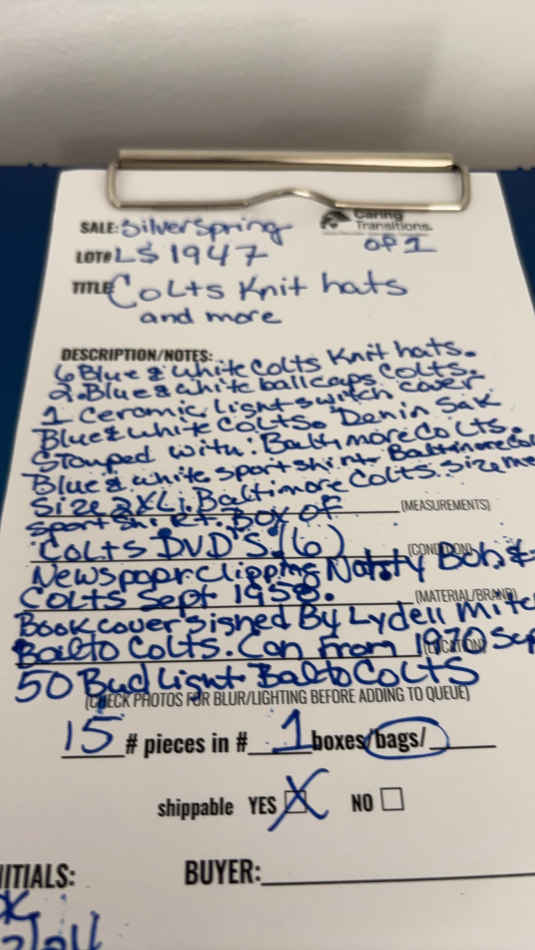 SALE: Silver Spring
Caring
Transitions.
OP 1
LOT# LS 1947
TITLE Colts Knit hats
and more
DESCRIPTION/NOTES:
6 Blue & White Colts Knit hats.
2. Blue & white ball caps Colts.
1 Ceramic light switch cover
Blue & white Colts. Denin Sak
Stamped with: Baltimore Colts.
Blue & white sport shirt Baltimore Col
Size 2XL. Baltimore Colts. Size me
Sport Shirt. Box of
(MEASUREMENTS)
Colts DVD'S. (6)
(CONDITION)
Newspapr Clipping Natty Boh. &
Colts Sept 1958.
(MATERIAL/BRAND)
Book cover signed By Lydell Mitc
Balto Colts. Can From 1970 Sup
(LOCATION)
50 Bud Light Balto Colts
(CHECK PHOTOS FOR BLUR/LIGHTING BEFORE ADDING TO QUEUE)
15 # pieces in # 1 boxes/bags/
shippable YES X NO
NITIALS: BUYER: